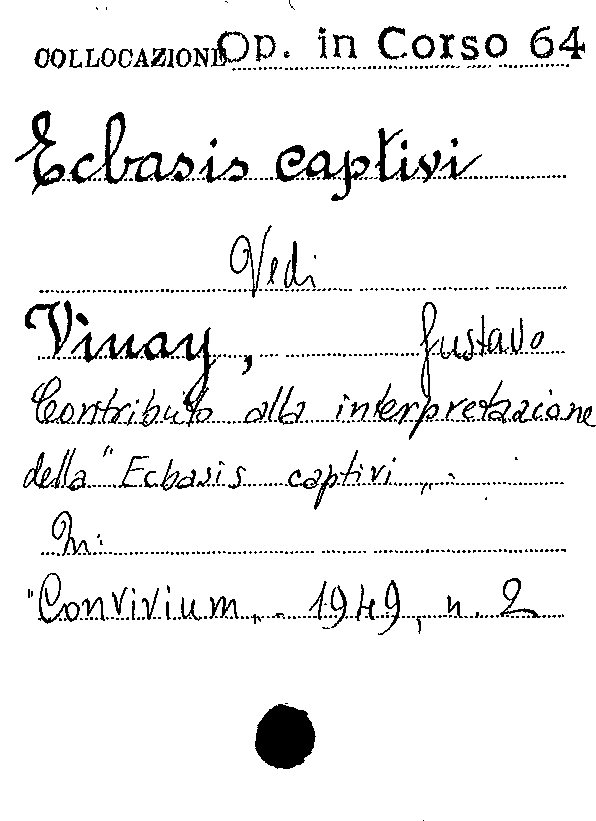 COLLOCAZIONE Op. in Corso 64
Ecbasis captivi
Vedi
Vinay, Gustavo
Contributo alla interpretazione
della "Ecbasis captivi".
In:
"Convivium". 1949, n. 2